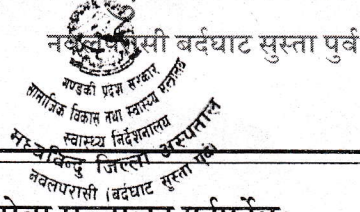 नवलपरासी बर्दघाट सुस्ता पुर्व
गण्डकी प्रदेश सरकार
सामाजिक विकास तथा स्वास्थ्य मन्त्रालय
स्वास्थ्य निर्देशनालय
मध्यविन्दु जिल्ला अस्पताल
नवलपरासी (बर्दघाट सुस्ता पूर्व)